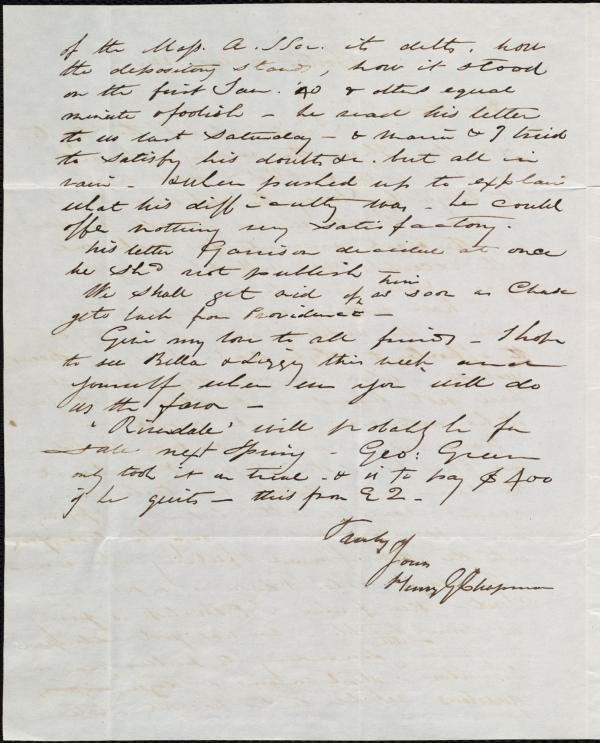 of the Mass. A. S Soc. its debts, how
the depository stands, how it stood
on the first Jan. '40 & others equal
minute & foolish - he read his letter
to us last Saturday - & Maria & I tried
to satisfy his doubts &c. but all in
vain - & when pushed up to explain
what his difficulty was - he could
offer nothing very satisfactory.
his letter Garrison decided at once
he shd not publish
We shall get rid of him as soon as Chase
gets back from Providence -
Give my love to all friends - I hope
to see Bella & Lizzy this week and
yourself when ever you will do
us the favor -
'Riverdale' will probably be for
sale next Spring - Geo: Green
only took it on trial - & is to pay $400
if he quits - this from E Q -
Yours
Henry G Chapman